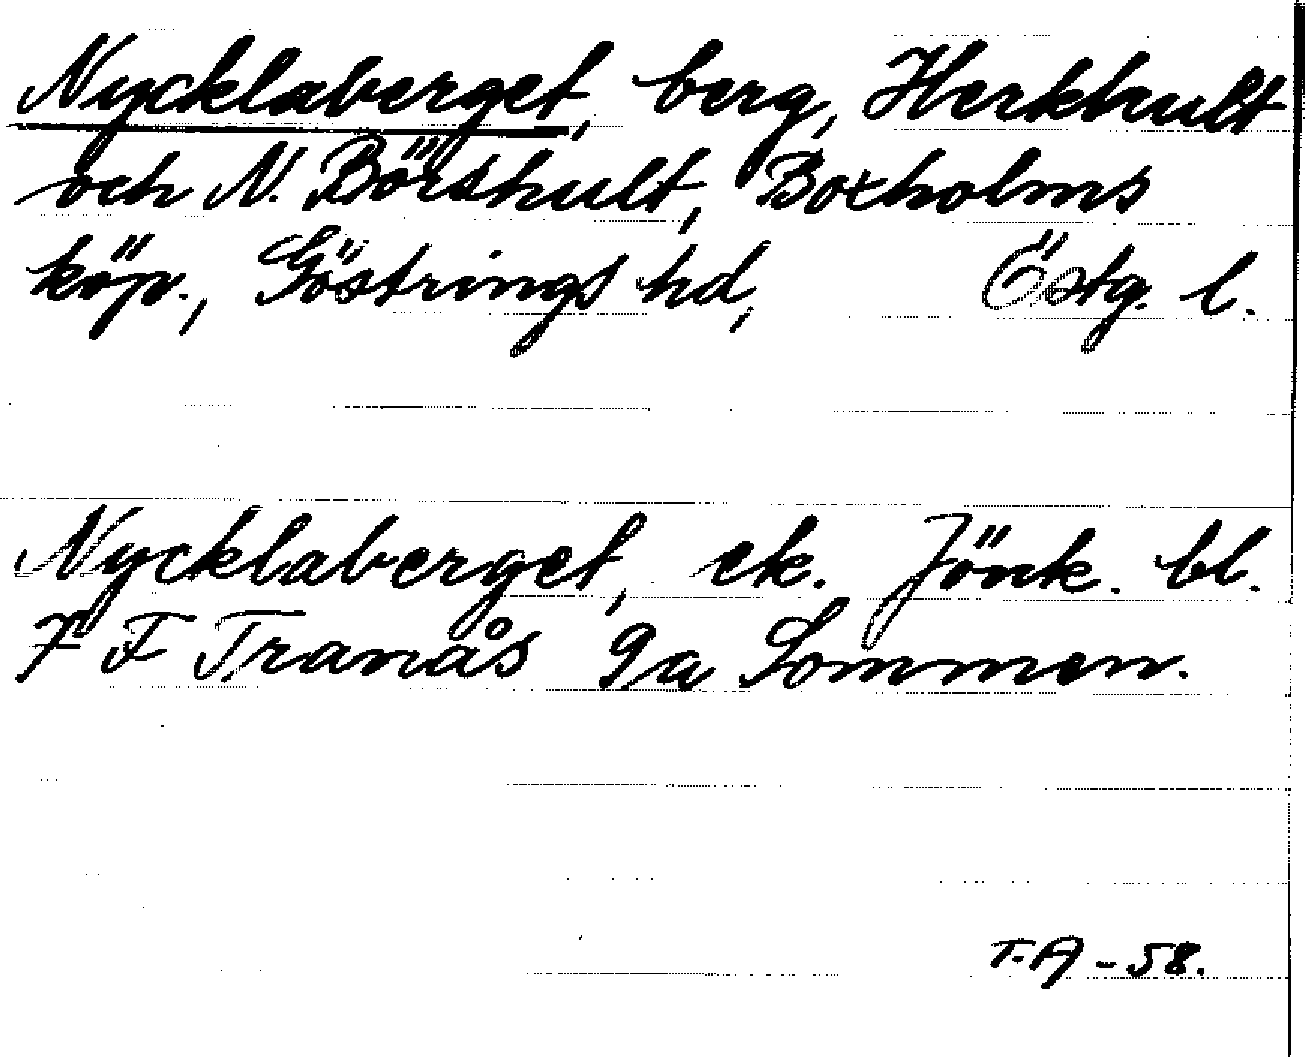 Nycklaberget, berg, Herkhult
och N. Börshult, Boxholms
köp., Göstrings hd, Östg. l.
Nycklaberget, ek. Jönk. bl.
7 F Tranås 9a Sommen.
T.A - 58.